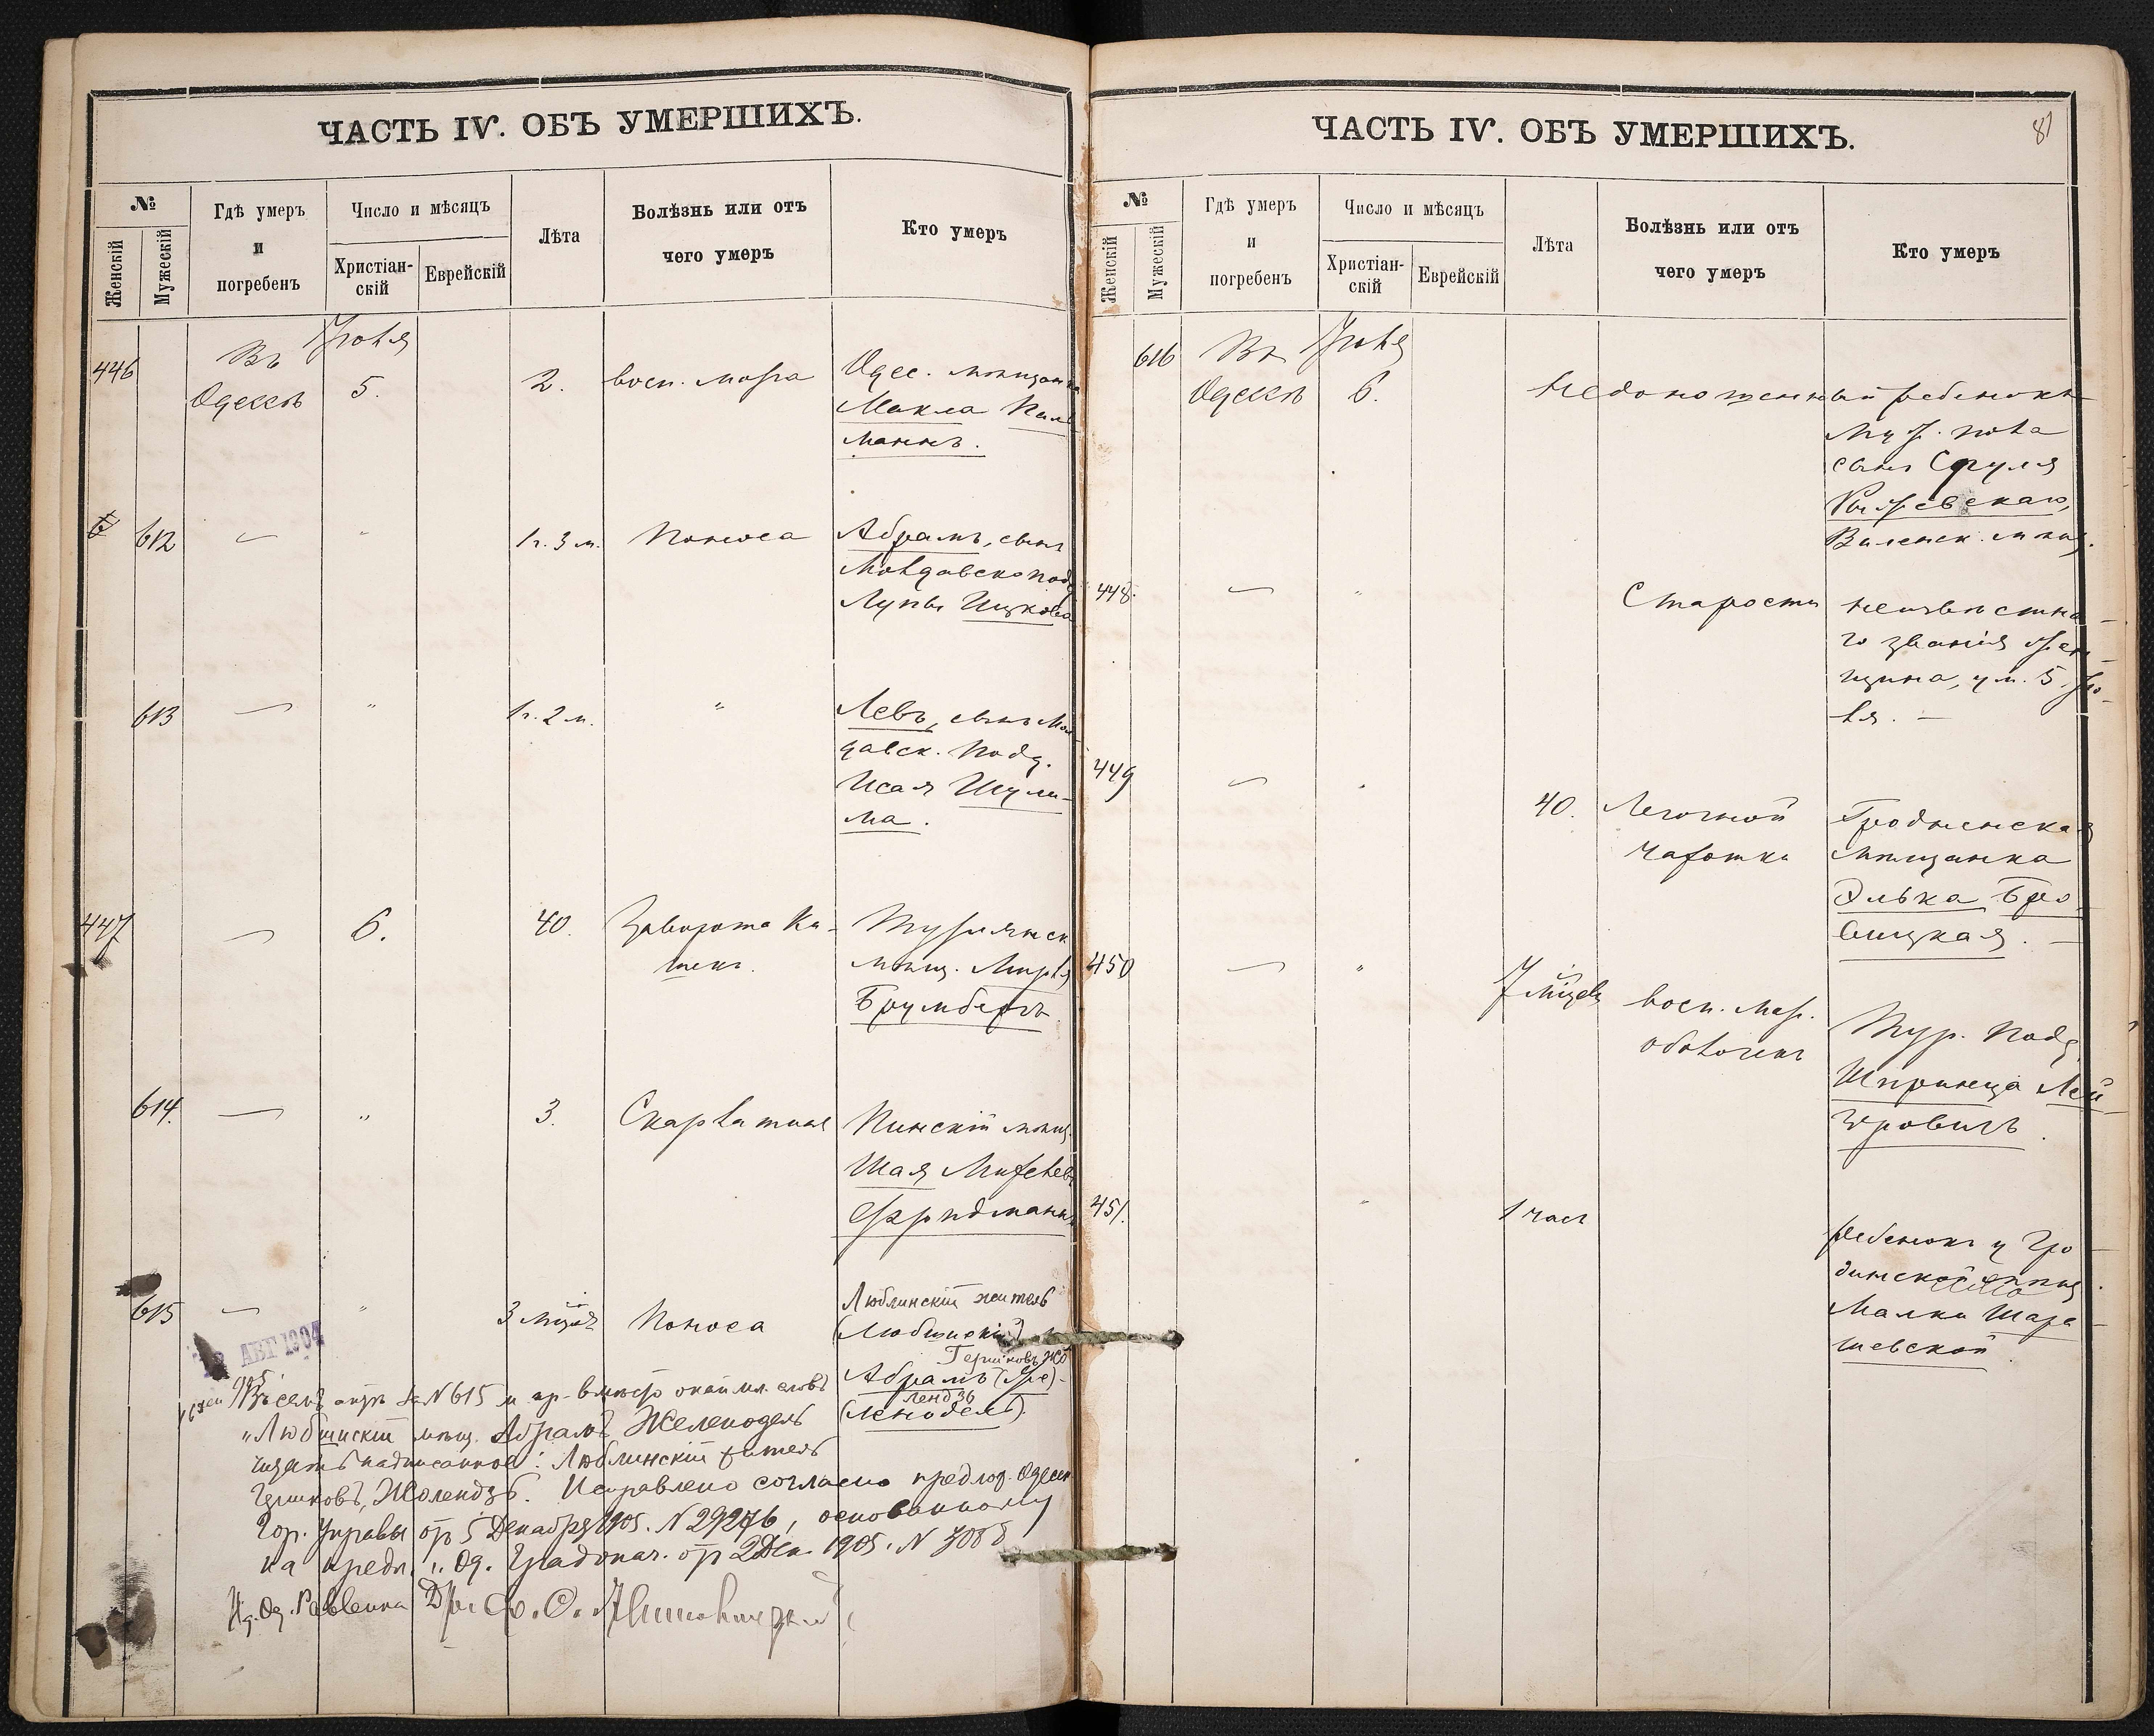 ЧАСТЬ IV. ОБЪ УМЕРШИХЪ.
№
Женскій
Мужескій
Гдѣ умеръ
и
погребенъ
Число и мѣсяцъ
Христіан-
скій
Еврейскій
Лѣта
Болѣзнь или отъ
чего умеръ
Кто умеръ
446
Въ
Одессѣ
Іюля
5.
2.
восп. мозга
Одес. мѣщанка
Макла
маннъ.
612
1 г. 3 м.
Поноса
Абрамъ, сынъ
Молдавск. подд.
Лупы Ицкова
613
1 г. 2 м.
Левъ, сынъ Мол-
давск. подд.
Исая Шули-
ма.
447
6.
40.
Заворота ки-
шекъ.
мѣщ.
Брумбергъ
614.
3.
Скарлатина
Пинскій мѣщ.
Шая
Фридманъ
615
3 мѣсяц.
Поноса
Люблинскій житель
(Любинскій)
Гершковъ Жо
Абрамъ (Же)-
лендзь
(ленодель)
12 АВГ 1904
Въ семъ актѣ за № 615 м. пр. вмѣсто словъ
„Любинскій мѣщ. Абрамъ Желенодель
читать надписанное: Люблинскій житель
Гершковъ, Жолендзь. Исправлено согласно предлож. Одесск.
Гор. Управы отъ 5 Декабря 1905. № 29276, основанному
на предл. г. Од. Градонач. от 2 Дек. 1905. №
Од. Раввина
ЧАСТЬ IV. ОБЪ УМЕРШИХЪ.
81
№
Женскій
Мужескій
Гдѣ умеръ
и
погребенъ
Число и мѣсяцъ
Христіан-
скій
Еврейскій
Лѣта
Болѣзнь или отъ
чего умеръ
Кто умеръ
616
Въ
Одессѣ
Іюля
6.
Недоношенный ребенокъ
муж. пола
сынъ Сруля
Виленск. мѣщ.
448.
Старости
неизвѣстна-
го званія жен-
щина, ум. 5 Ію-
ля. —
449
40.
Легочной
чахотки
Гродненская
мѣщанка
Элька Бро-
вицкая. —
450
7 мѣсяцевъ
восп. мозг.
оболочекъ
Тур. подд.
Шпринца Лей-
зеровичъ.
451.
1 часъ
Ребенокъ у Гро-
дненской мѣщ.
Малки Шере-
шевской